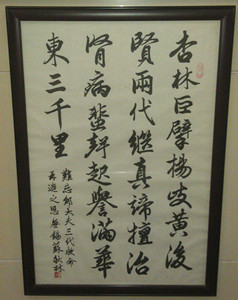 杏林巨擘楊岐黃後
賢兩代繼真諦擅治
腎病蜚聲起譽滿華
東三千里
難忘鄒大夫三代救命
再造之恩 無錫蘇歓林